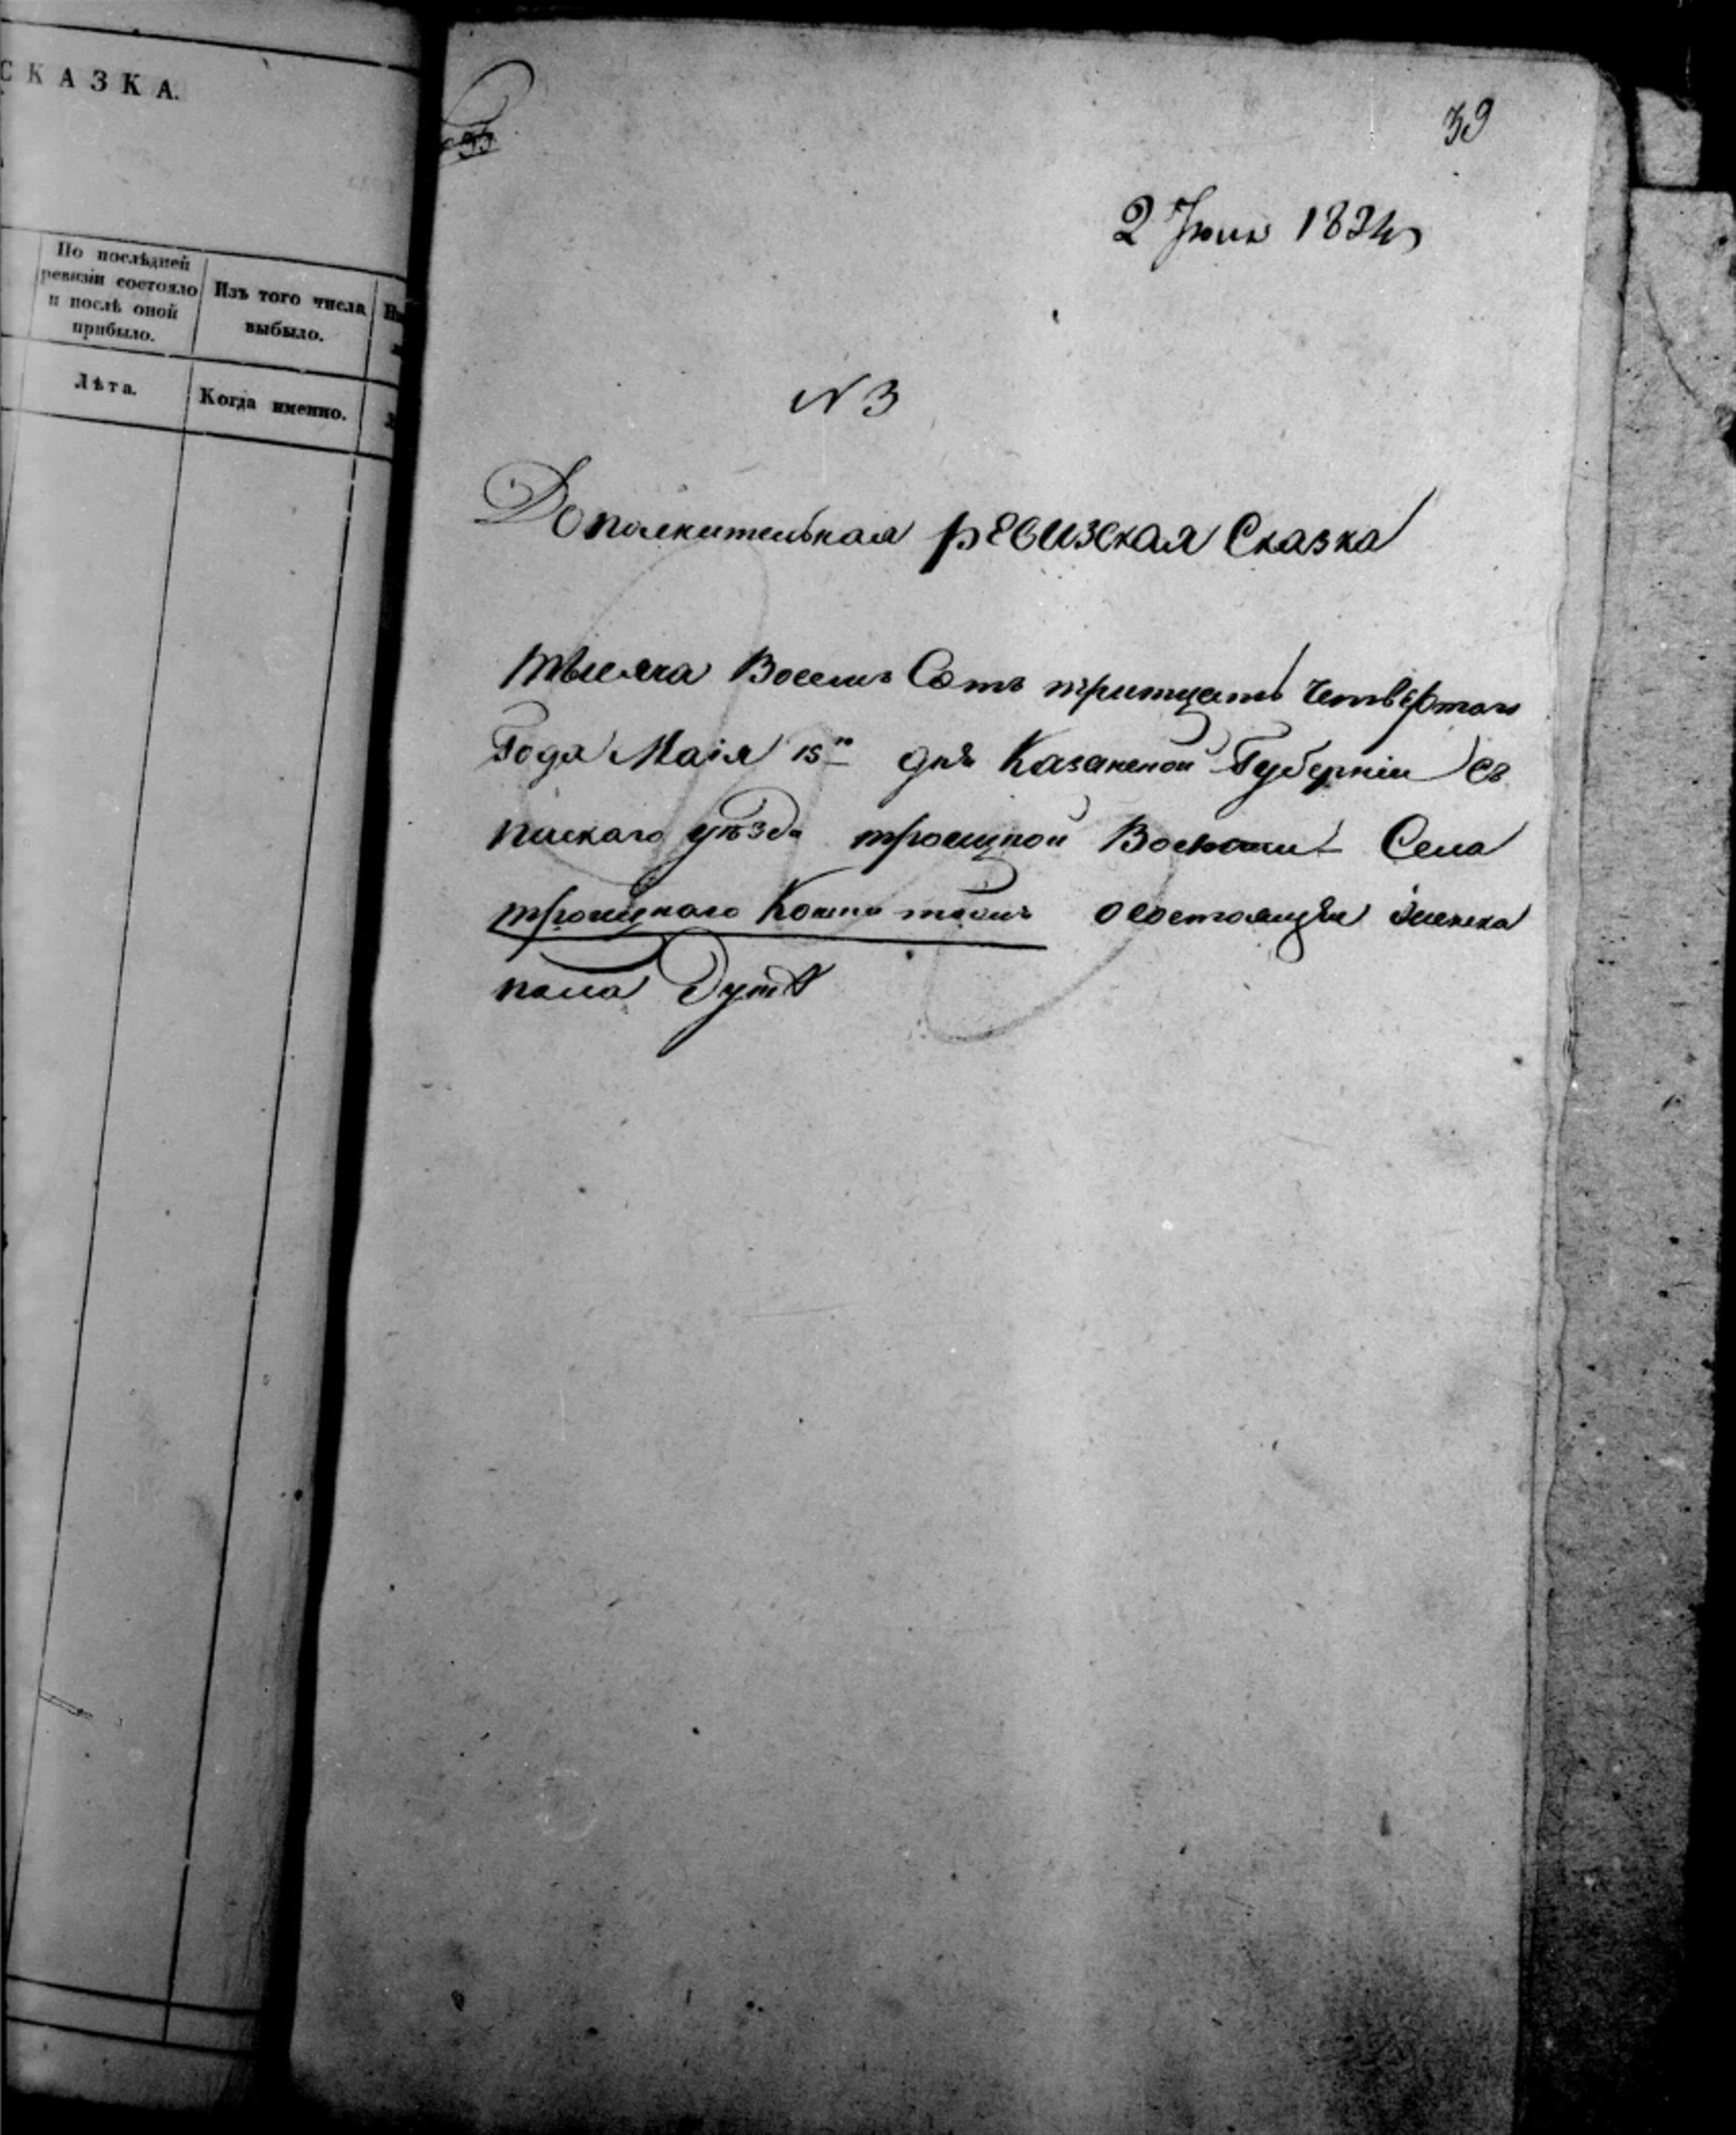 СКАЗКА.
По послѣдней
ревизіи состояло
и послѣ оной
прибыло.
Изъ того числа
выбыло.
Лѣта.
Когда именно.
39
2 Іюня 1834
N 3
Дополнительная ревизская Сказка
тысяча Восемь Сотъ тритцать четвертаго
Года Маія 15го дня Казанской Губерніи Сѣ
пискаго уѣзда троицкой Волости Села
троицкаго о состоящих
пола Душъ